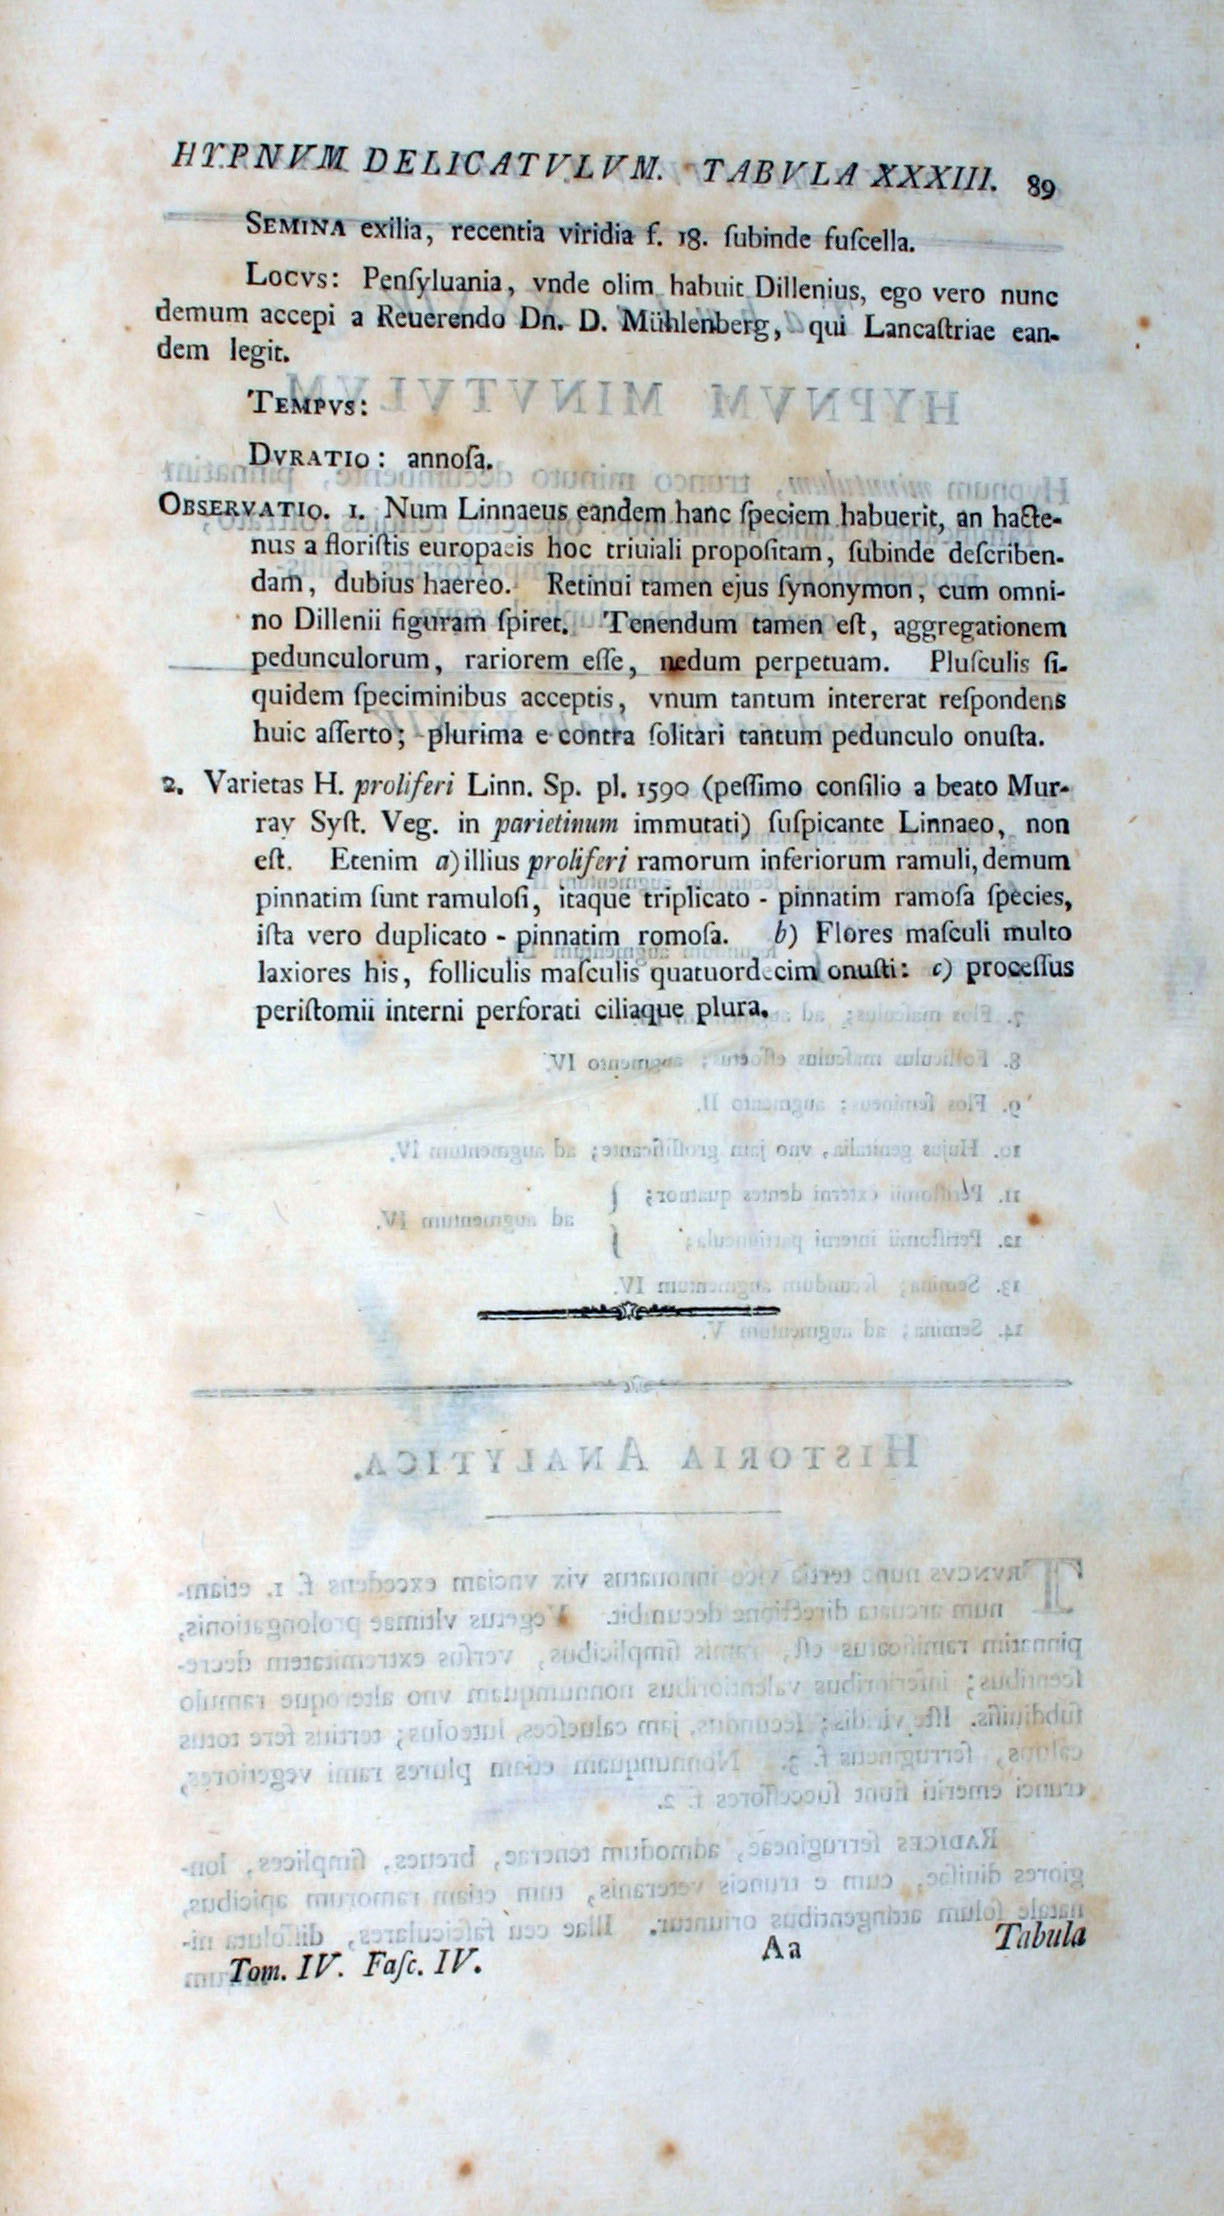 HYPNVM DELICATVLVM. TABVLA XXXIII. 89
SEMINA exilia, recentia viridia f. 18. ſubinde fuſcella.
LOCVS: Penſyluania, vnde olim habuit Dillenius, ego vero nunc
demum accepi a Reuerendo Dn. D. Mühlenberg, qui Lancaſtriae ean-
dem legit.
TEMPVS:
DVRATIO: annoſa.
OBSERVATIO. 1. Num Linnaeus eandem hanc ſpeciem habuerit, an hacte-
nus a floriſtis europaeis hoc triuiali propoſitam, ſubinde deſcriben-
dam, dubius haereo. Retinui tamen ejus ſynonymon, cum omni-
no Dillenii figuram ſpiret. Tenendum tamen eſt, aggregationem
pedunculorum, rariorem eſſe, nedum perpetuam. Pluſculis ſi-
quidem ſpeciminibus acceptis, vnum tantum intererat reſpondens
huic aſſerto; plurima e contra ſolitari tantum pedunculo onuſta.
2. Varietas H. proliferi Linn. Sp. pl. 1590 (peſſimo conſilio a beato Mur-
ray Syſt. Veg. in parietinum immutati) ſuſpicante Linnaeo, non
eſt. Etenim a) illius proliferi ramorum inferiorum ramuli, demum
pinnatim ſunt ramuloſi, itaque triplicato - pinnatim ramoſa ſpecies,
iſta vero duplicato - pinnatim romoſa. b) Flores maſculi multo
laxiores his, folliculis maſculis quatuordecim onuſti: c) proceſſus
periſtomii interni perforati ciliaque plura.
Tom. IV. Faſc. IV. Aa Tabula